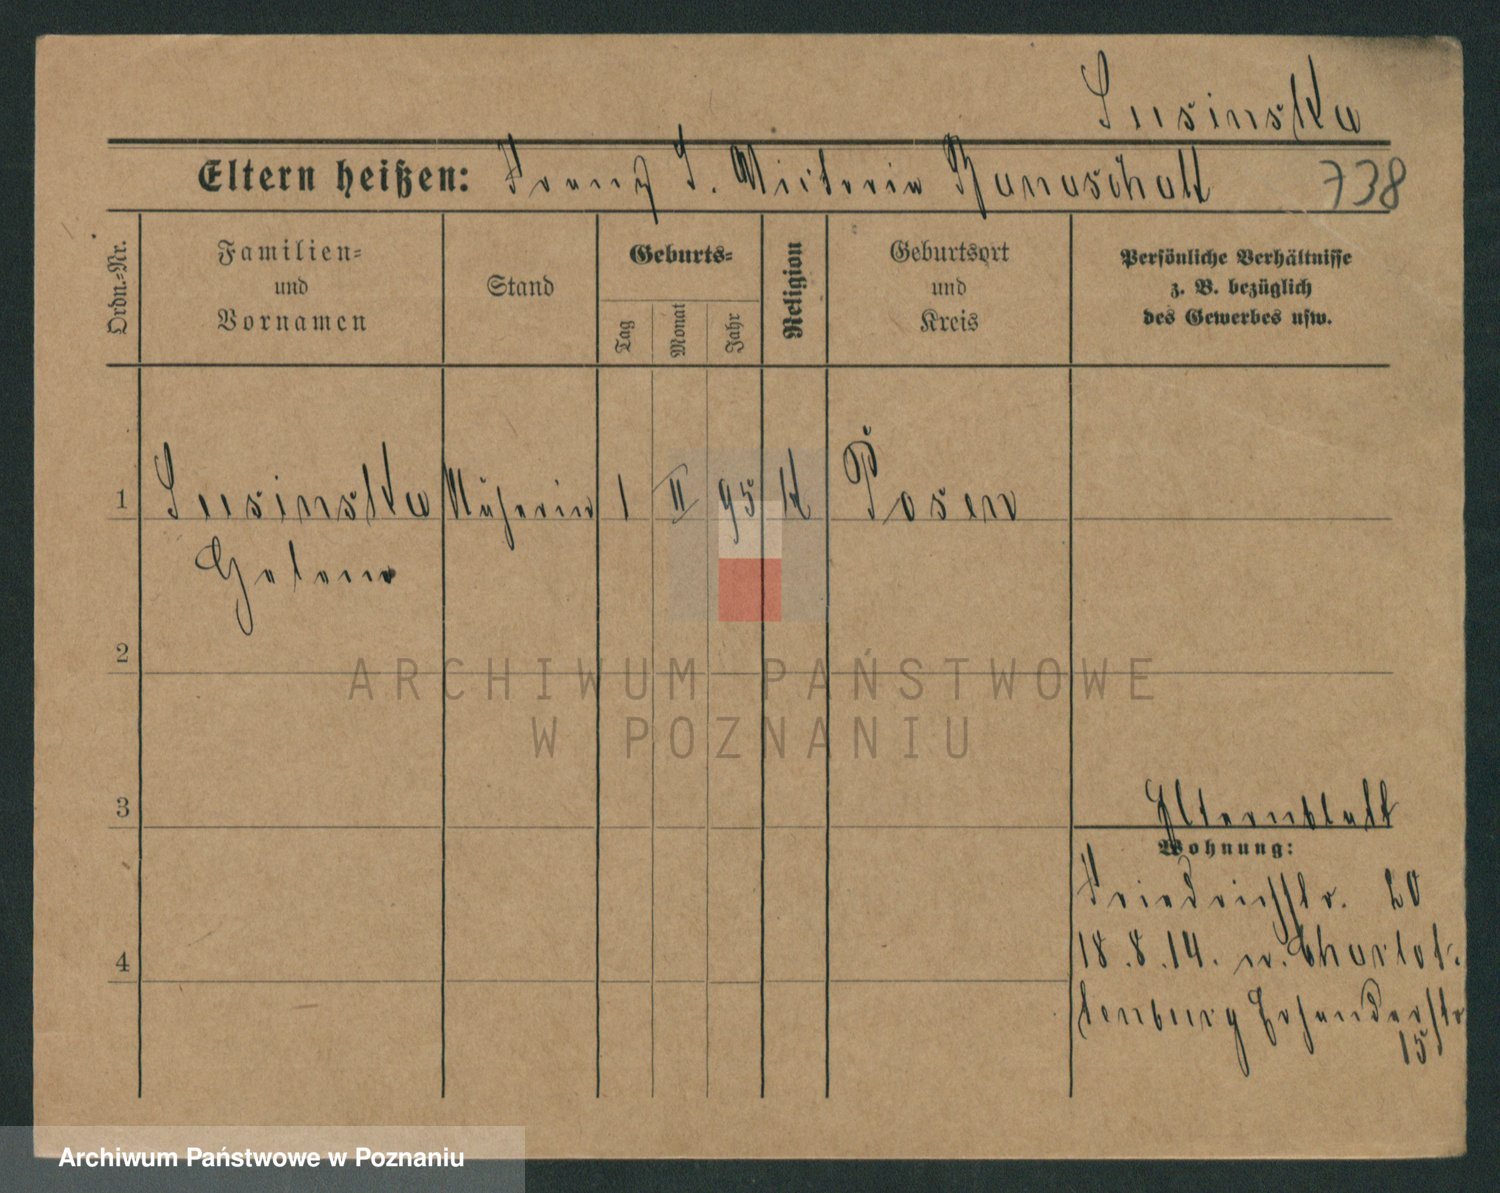 Susinska
Eltern heißen: Franz S. Victoria Banaschak 738
Ordn.-Nr.
Familien-
und
Vornamen
Stand
Geburts-
Tag
Monat
Jahr
Religion
Geburtsort
und
Kreis
Persönliche Verhältnisse
z. B. bezüglich
des Gewerbes usw.
1 Susinska Näherin 1 II 95 K Posen
Helene
2
3
4
Elternblatt
Wohnung:
Friedrichstr. 20
18.8.14. n. Charlot-
tenburg
15
ARCHIWUM PAŃSTWOWE
W POZNANIU
Archiwum Państwowe w Poznaniu